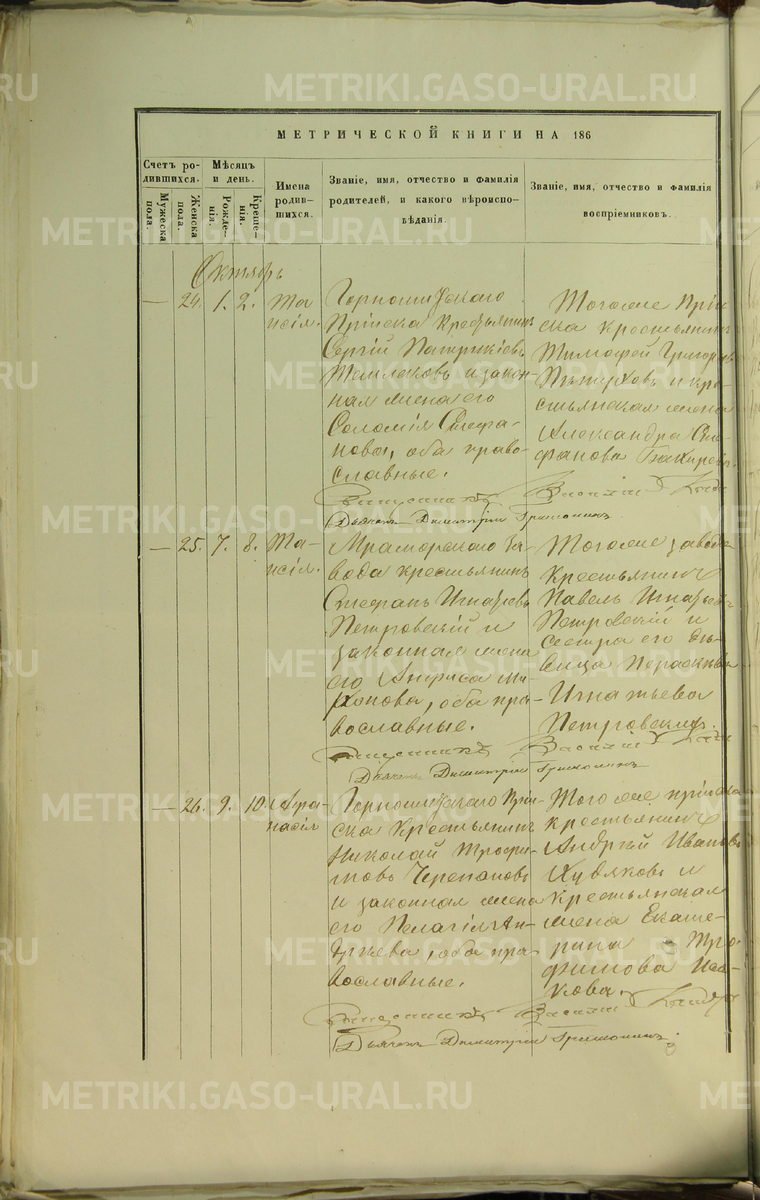 МЕТРИЧЕСКОЙ КНИГИ НА 186
Счетъ ро-
дившихся.
Мужеска
пола.
Женска
пола.
Мѣсяцъ
и день.
Рожде-
нія.
Креще-
нія.
Имена
родив-
шихся.
Званіе, имя, отчество и фамилія
родителей, и какого вѣроиспо-
вѣданія.
Званіе, имя, отчество и фамилія
воспріемниковъ.
Октябрь
— 24. 1. 2. Та-
исія.
Горнощитскаго
Пріиска Крестьянинъ
Сергій Патрикіевъ
Темляковъ и закон-
ная жена его
Соломія Стефа-
нова, оба право-
славные.
Тогоже Прі-
ска крестьянинъ
Тимофей Григорьевъ
Пѣтуховъ и кре-
стьянская жена
Александра Сте-
фанова
Священникъ Василій
Дьячекъ Димитрій
— 25. 7. 8. Та-
исія.
Мраморскаго За-
вода крестьянинъ
Стефанъ Игнатьевъ
Петровскій и
законная жена
его Анфиса Ми-
, оба пра-
вославные.
Тогоже завода
Крестьянинъ
Павелъ Игнатьевъ
Петровскій и
сестра его дѣ-
вица Параскева
Игнатьева
Петровская.
Священникъ Василій
Дьячекъ Димитрій
— 26. 9. 10. Афа-
насія
Горнощитскаго Прі-
ска Крестьянинъ
Николай Трофи-
мовъ Черепановъ
и законная жена
его Пелагія Ан-
дреева, оба пра-
вославные.
Того же пріиска
крестьянинъ
Андрей Ивановъ
Худяковъ и
крестьянская
жена Екате-
рина Тро-
фимова Иса-
кова.
Священникъ Василій
Дьячекъ Димитрій
METRIKI.GASO-URAL.RU